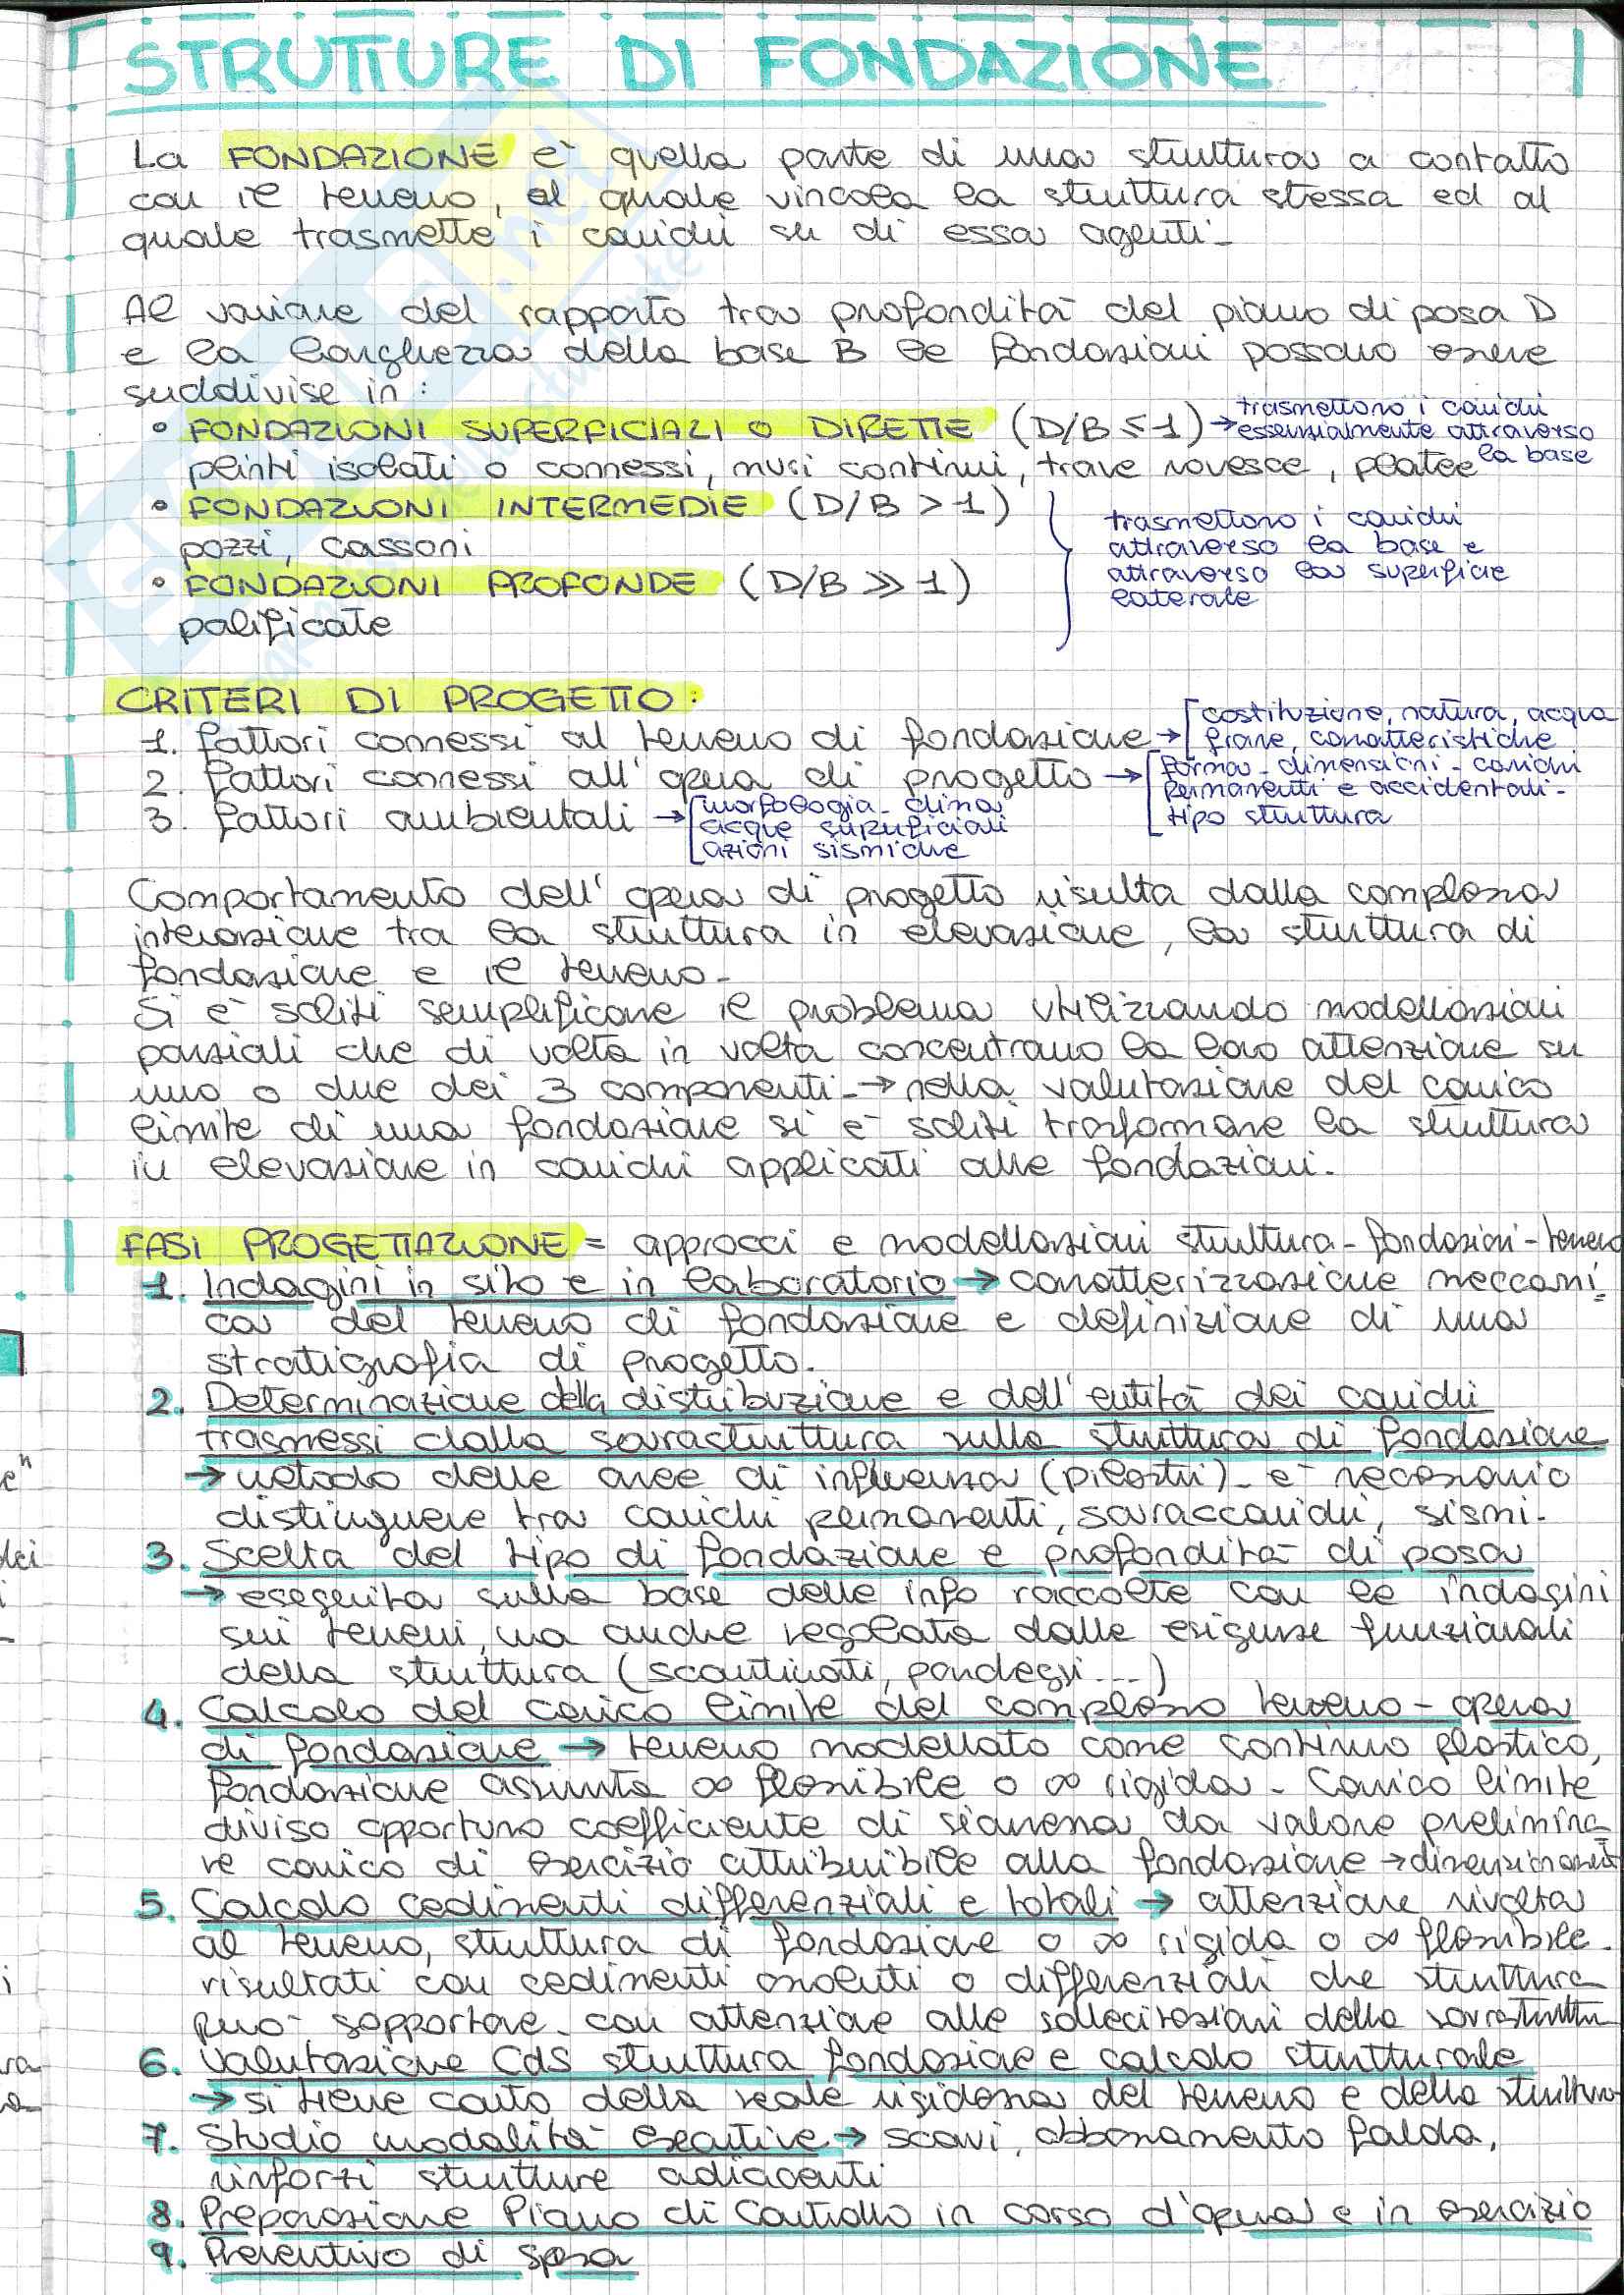 STRUTTURE DI FONDAZIONE
La FONDAZIONE è quella parte di una struttura a contatto
con il terreno, al quale vincola la struttura stessa ed al
quale trasmette i carichi su di essa agenti.
Al variare del rapporto tra profondità del piano di posa D
e la larghezza della base B le fondazioni possono essere
suddivise in:
• FONDAZIONI SUPERFICIALI O DIRETTE (D/B ≤ 1) → trasmettono i carichi
essenzialmente attraverso
la base
plinti isolati o connessi, muri continui, trave rovesce, platee
• FONDAZIONI INTERMEDIE (D/B > 1)
pozzi, cassoni
• FONDAZIONI PROFONDE (D/B ≫ 1)
palificate
trasmettono i carichi
attraverso la base e
attraverso la superficie
laterale
CRITERI DI PROGETTO:
1. fattori connessi al terreno di fondazione → costituzione, natura, acqua
frane, caratteristiche
2. fattori connessi all'opera di progetto → forma - dimensioni - carichi
permanenti e accidentali -
tipo struttura
3. fattori ambientali → morfologia - clima
acque superficiali
azioni sismiche
Comportamento dell'opera di progetto risulta dalla complessa
interazione tra la struttura in elevazione, la struttura di
fondazione e il terreno -
Si è soliti semplificare il problema utilizzando modellazioni
parziali che di volta in volta concentrano la loro attenzione su
uno o due dei 3 componenti - → nella valutazione del carico
limite di una fondazione si è soliti trasformare la struttura
in elevazione in carichi applicati alle fondazioni -
FASI PROGETTAZIONE = approcci e modellazioni struttura - fondazioni - terreno
1. Indagini in sito e in laboratorio → caratterizzazione meccani=
ca del terreno di fondazione e definizione di una
stratigrafia di progetto.
2. Determinazione della distribuzione e dell'entità dei carichi
trasmessi dalla sovrastruttura sulla struttura di fondazione
→ metodo delle aree di influenza (pilastri) - è necessario
distinguere tra carichi permanenti, sovraccarichi, sismi -
3. Scelta del tipo di fondazione e profondità di posa
→ eseguita sulla base delle info raccolte con le indagini
sui terreni, ma anche regolata dalle esigenze funzionali
della struttura (scantinati, parcheggi...)
4. Calcolo del carico limite del complesso terreno - opera
di fondazione → terreno modellato come continuo plastico,
fondazione assunta ∞ flessibile o ∞ rigida - Carico limite
diviso opportuno coefficiente di sicurezza da valore prelimina=
re carico di esercizio attribuibile alla fondazione →
5. Calcolo cedimenti differenziali e totali → attenzione rivolta
al terreno, struttura di fondazione o ∞ rigida o ∞ flessibile -
risultati con cedimenti assoluti o differenziali che struttura
può sopportare - con attenzione alle sollecitazioni della
6. Valutazione CdS struttura fondazione e calcolo strutturale
→ si tiene conto della reale rigidezza del terreno e della struttura
7. Studio modalità esecutive → scavi, abbassamento falda,
rinforzi strutture adiacenti
8. Preparazione Piano di Controllo in corso d'opera e in esercizio
9. Preventivo di spesa